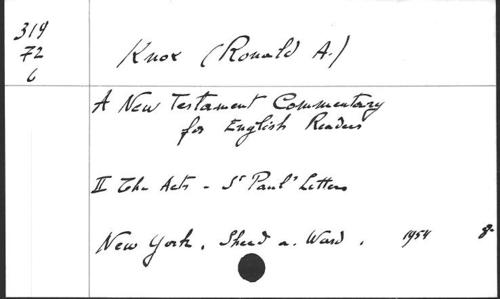 319
72
6
Knox (Ronald A.)
A New Testament Commentary
for English Readers
II The Acts - St Paul's Letters
New York. Sheed a. Ward. 1954 8-